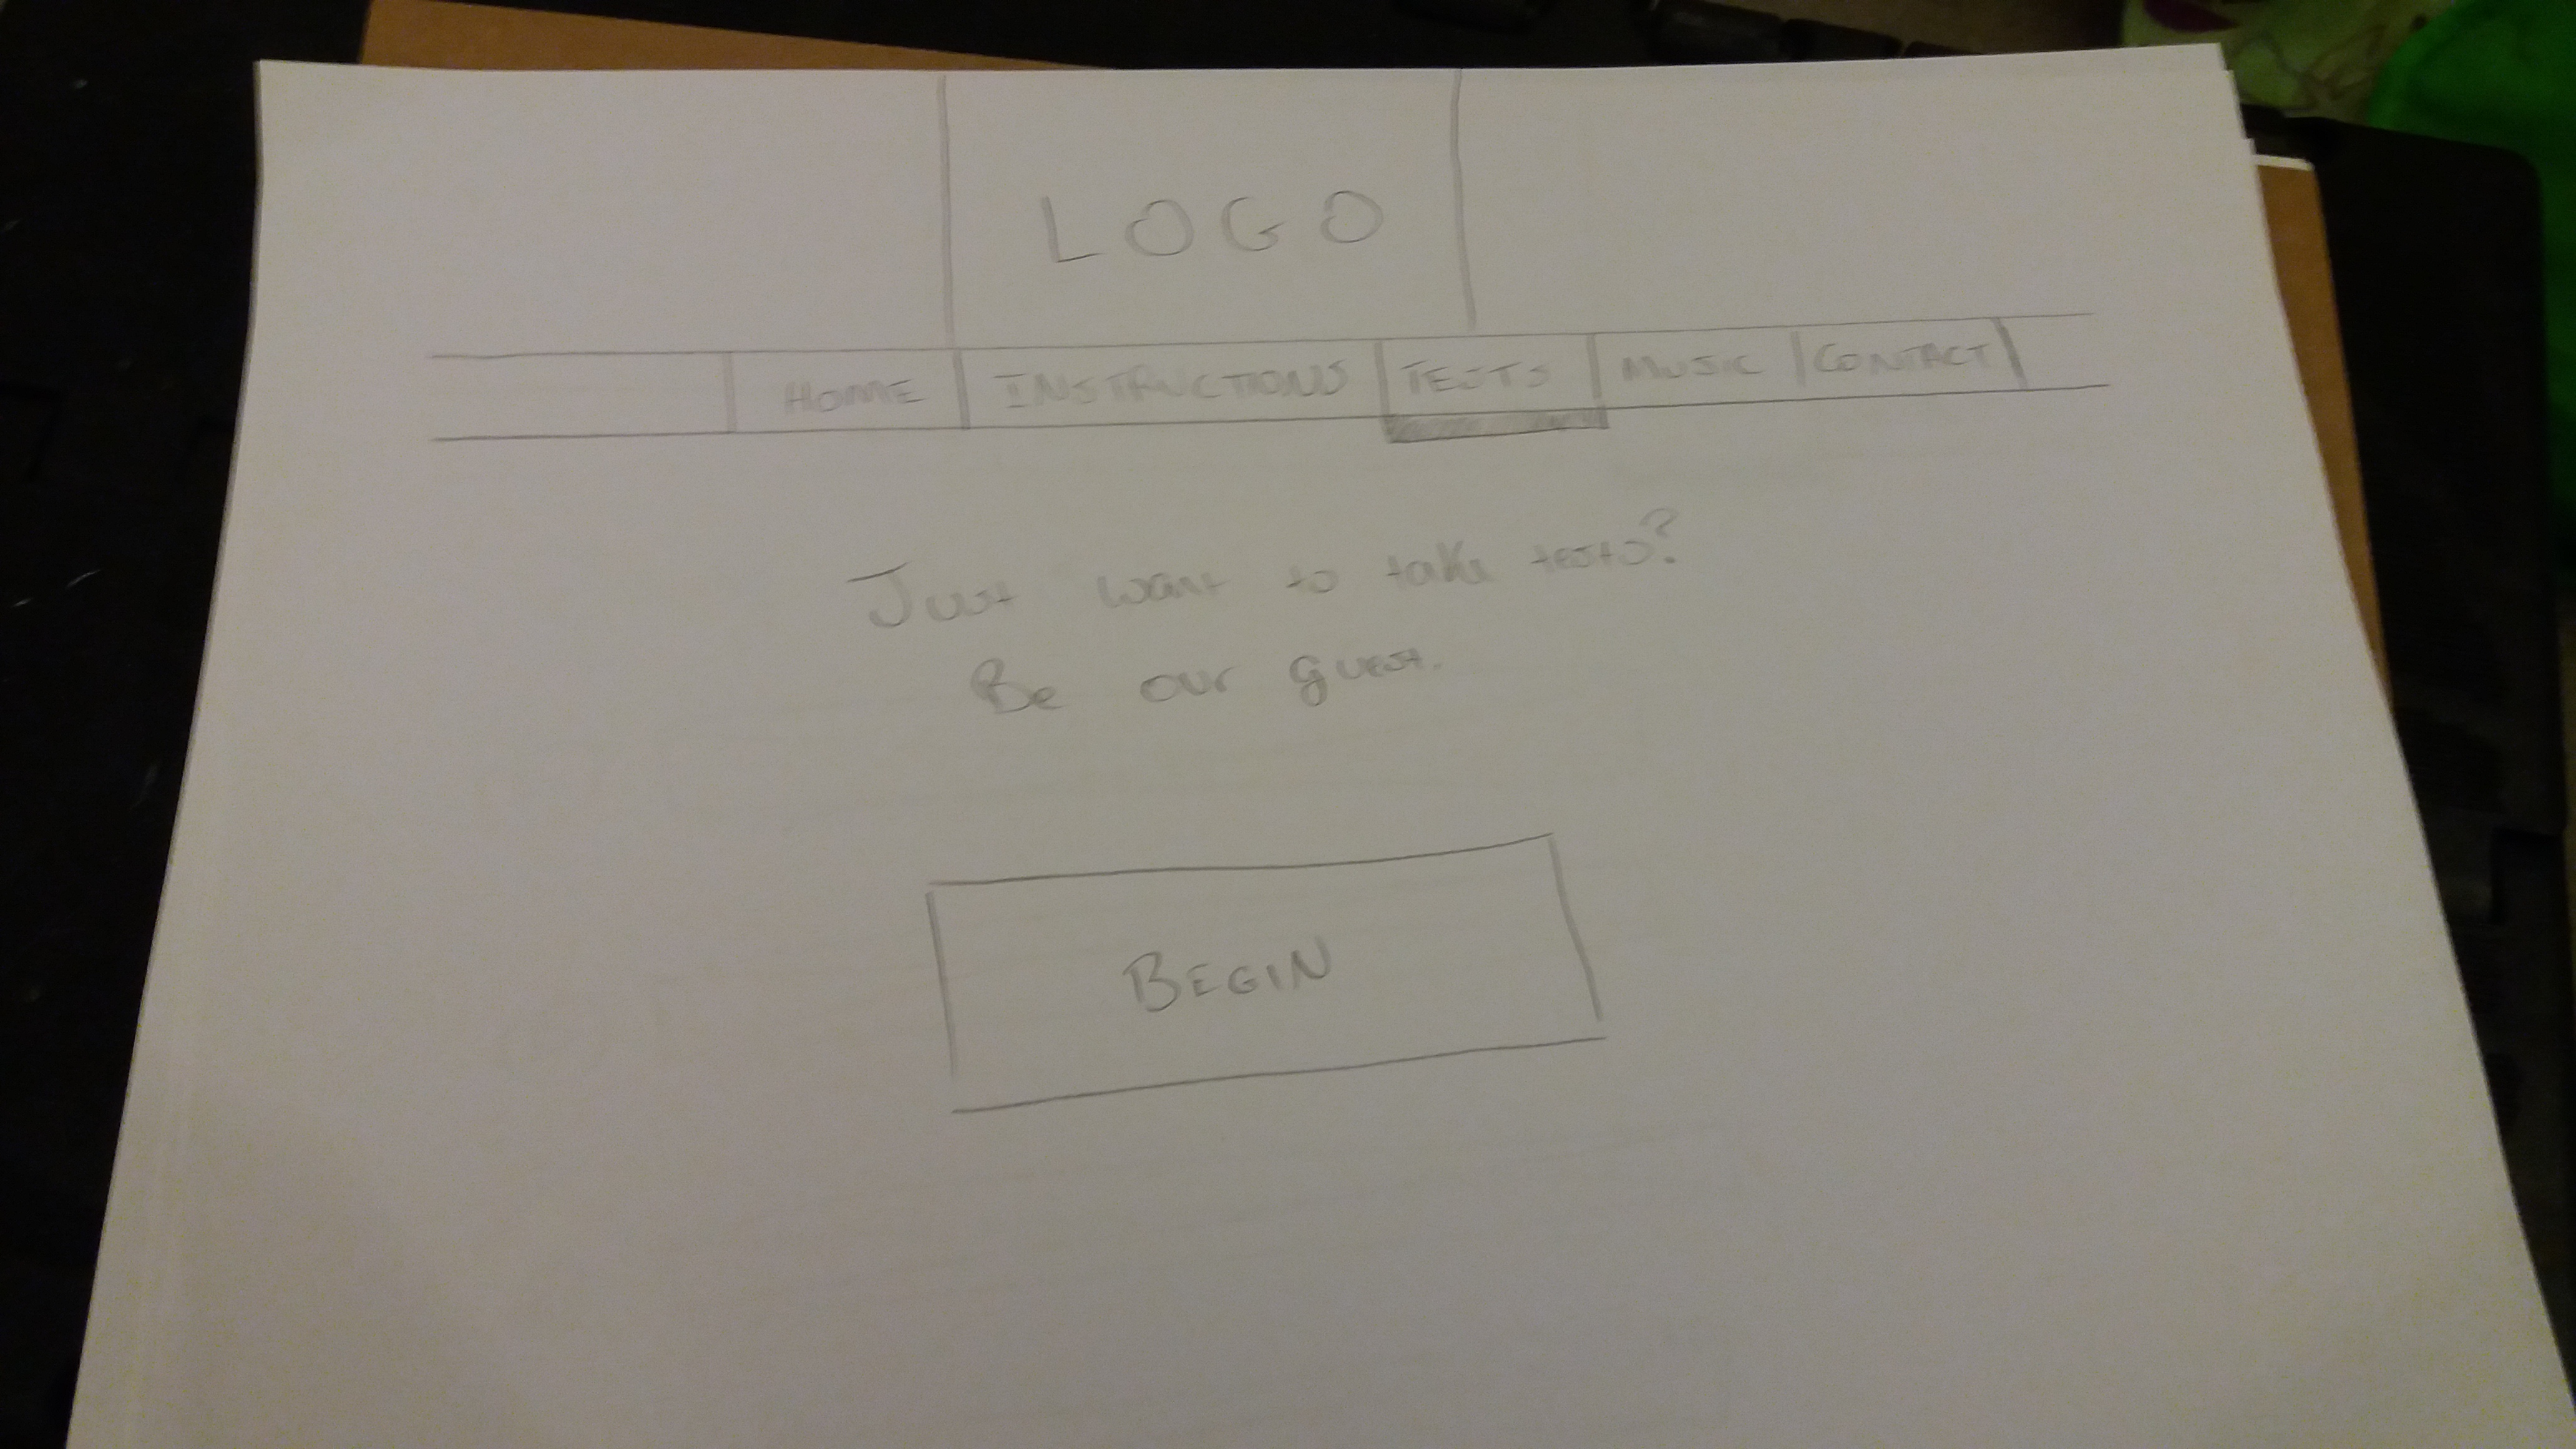 LOGO
HOME INSTRUCTIONS TESTS MUSIC CONTACT
Just want to take tests?
Be our guest.
BEGIN